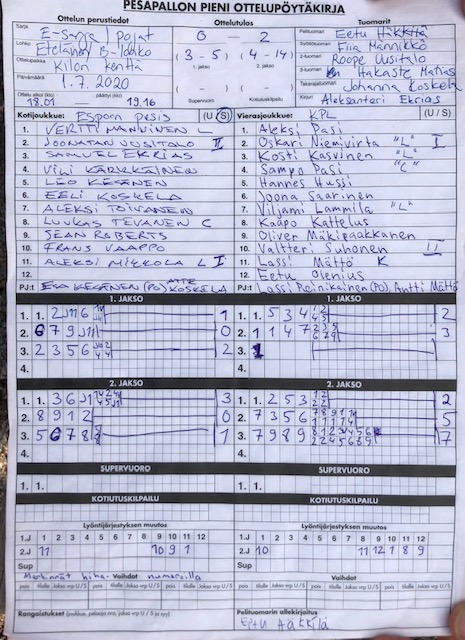 PESÄPALLON PIENI OTTELUPÖYTÄKIRJA
Ottelun perustiedot
Ottelutulos
Tuomarit
Sarja E-Sarja / Pojat
Lohko Eteläinen B-lohko
Ottelupaikka Kilon kenttä
Päivämäärä 1.7.2020
Ottelu alkoi (klo) 18.01 — päättyi (klo) 19.16
0 – 2
(3 - 5) (4 - 14)
1. jakso 2. jakso
Supervuoro Kotiutuskilpailu
Pelituomari Eetu Häkkilä
Syöttötuomari Fiia Männikkö
2-tuomari Roope Uusitalo
3-tuomari Hakaste Matias
Takarajatuomari Johanna Koskela
Kirjuri Aleksanteri Ekrias
Kotijoukkue: Espoon pesis (U / S)
1. VERTTI MANNINEN L
2. JOONATAN UUSITALO II
3. SAMUEL EKRIAS
4. VILI KÄRKKÄINEN
5. LEO KESÄNEN
6. EELI KOSKELA
7. ALEKSI TOIVANEN
8. LUUKAS TEVANEN C
9. SEAN ROBERTS
10. FRANS VAARPO
11. ALEKSI MIKKOLA L I
12.
PJ:t ESA KESÄNEN (PO) ATTE KOSKELA
Vierasjoukkue: KPL (U / S)
1. Aleksi Pasi
2. Oskari Niemivirta "L" I
3. Kosti Kasvinen "L"
4. Sampo Pasi "C"
5. Hannes Hussi
6. Joona Saarinen
7. Viljami Lammila "L"
8. Kaapo Kattelus
9. Oliver Mäkiraakkanen
10. Valtteri Sunonen II
11. Lassi Mättö K
12. Eetu Olenius
PJ:t Lassi Reinikainen (PO) Antti Mättö
1. JAKSO
1. 1. 2 11 6 1
2. 6 7 9 11 0
3. 2 3 5 6 2
4.
1. JAKSO
1. 1. 5 3 4 2
2. 1 1 4 7 3
3. 1
4.
2. JAKSO
1. 1. 3 6 11 3
2. 8 9 1 2 0
3. 5 6 7 8 1
4.
2. JAKSO
1. 1. 2 5 3 2
2. 7 3 5 6 5
3. 7 9 8 9 7
4.
SUPERVUORO
1. 1.
SUPERVUORO
1. 1.
KOTIUTUSKILPAILU
KOTIUTUSKILPAILU
Lyöntijärjestyksen muutos
1.J 1 2 3 4 5 6 7 8 9 10 11 12
2.J 11 10 9 1
Sup
Lyöntijärjestyksen muutos
1 2 3 4 5 6 7 8 9 10 11 12
2.J 10 11 12 1 8 9
Merkinnät hiha-numeroilla
Vaihdot
pois tilalle Jakso vrp U / S pois tilalle Jakso vrp U / S
Vaihdot
pois tilalle Jakso vrp U / S pois tilalle Jakso vrp U / S
Rangaistukset (joukkue, pelaaja nro, jakso vrp U / S ja syy)
Pelituomarin allekirjoitus
Eetu Häkkilä